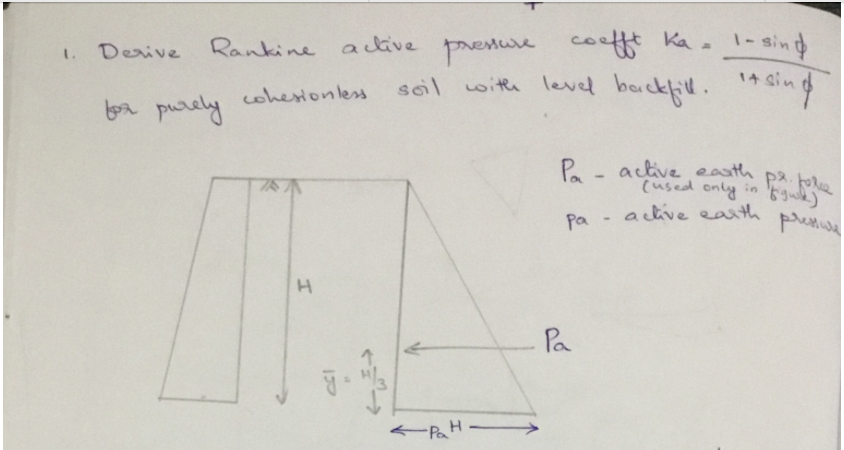 1. Derive Rankine active pressure coefft Ka = 1 - sin ϕ / 1 + sin ϕ
for purely cohesionless soil with level backfill.
Pa - active earth pr. force
(used only in figure)
pa - active earth pressure
H
Pa
ȳ = H/3
Pa H